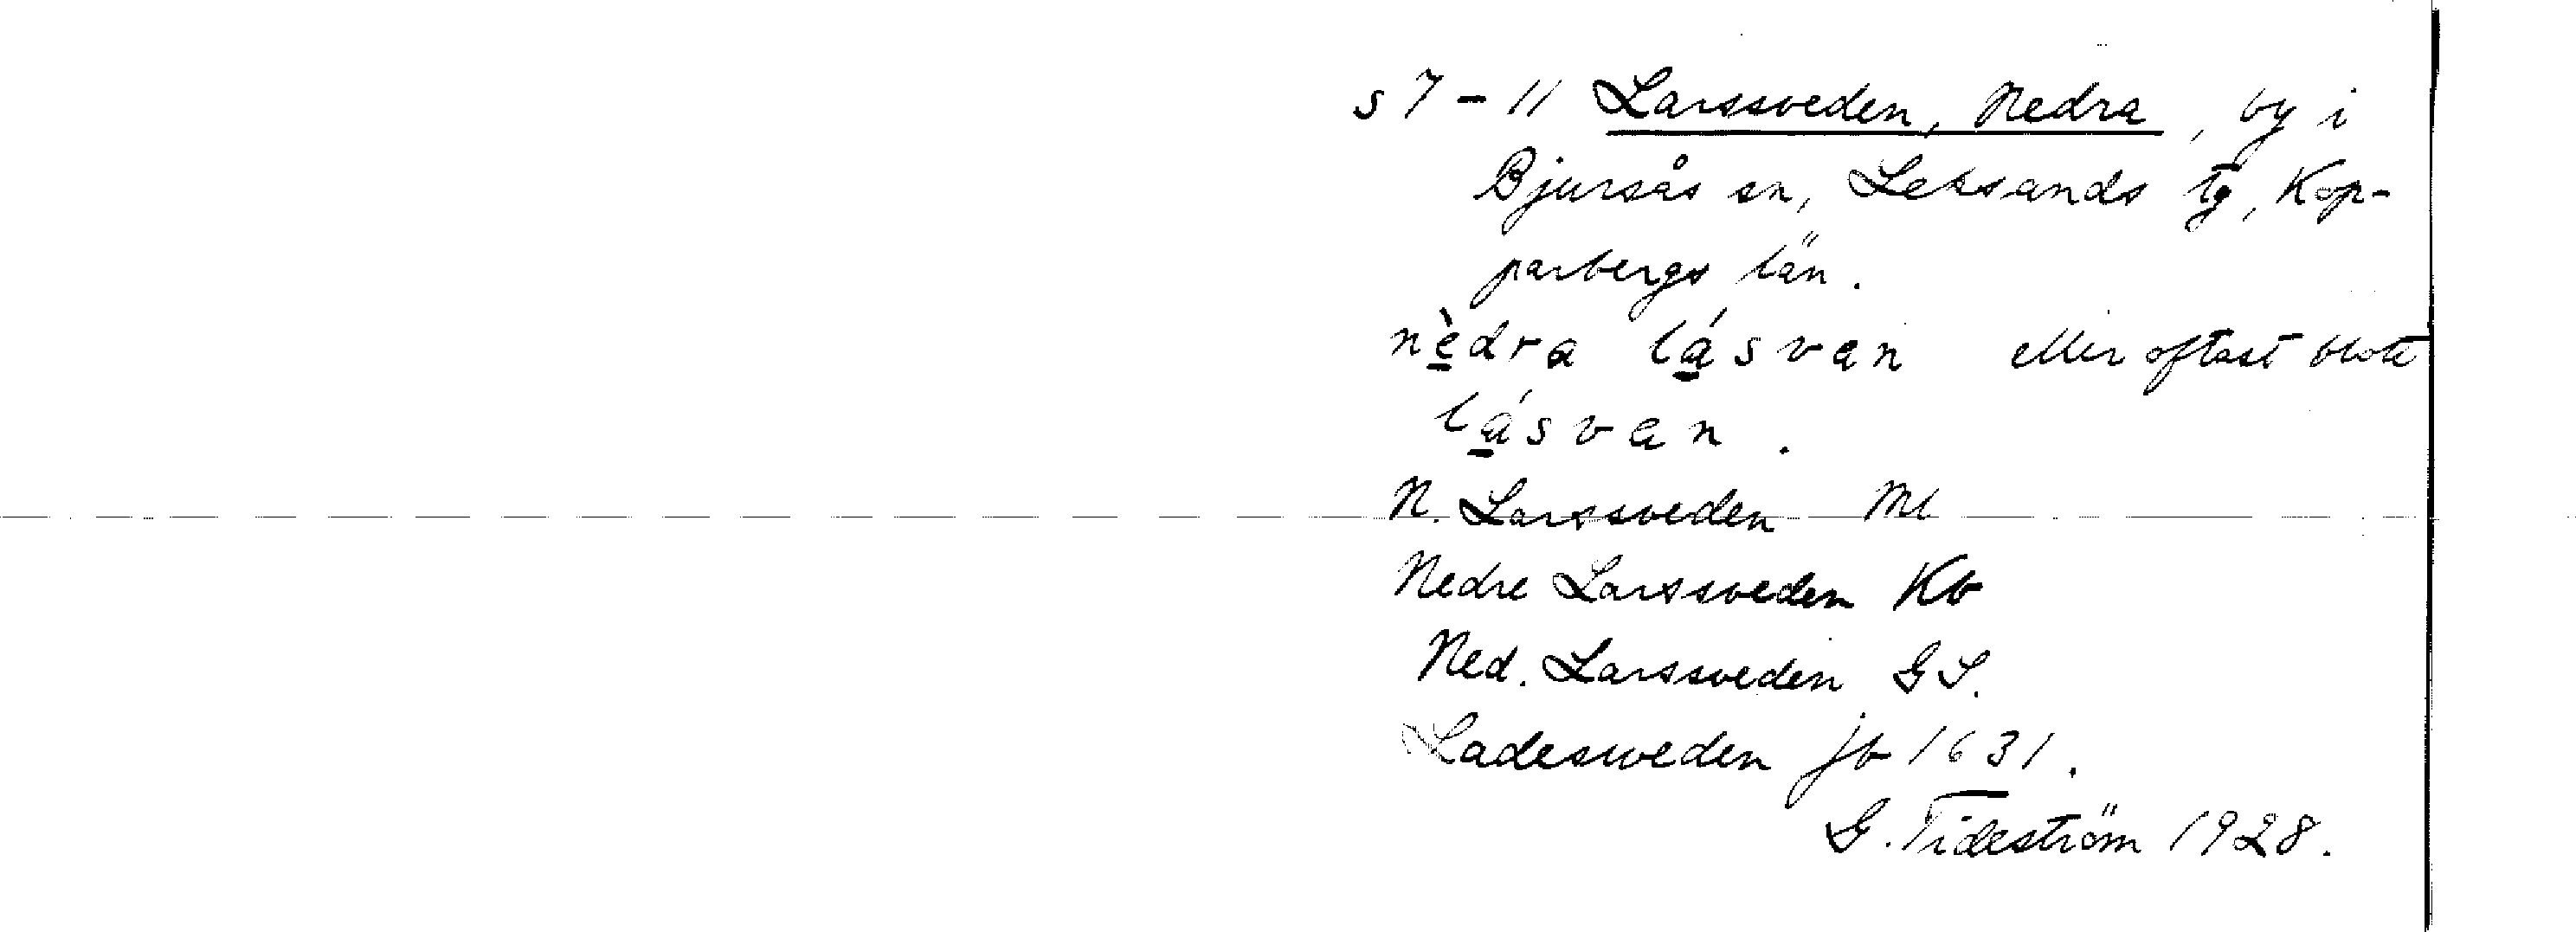 s 7 - 11 Larssveden, Nedra, by i
Bjursås sn, Leksands tg, Kop-
parbergs län.
nèdra lásvan eller oftast blott
lásvan.
N. Larssveden Ml
Nedre Larssveden Kb
Ned. Larssveden GS.
Ladesweden jb 1631.
G. Tideström 1928.